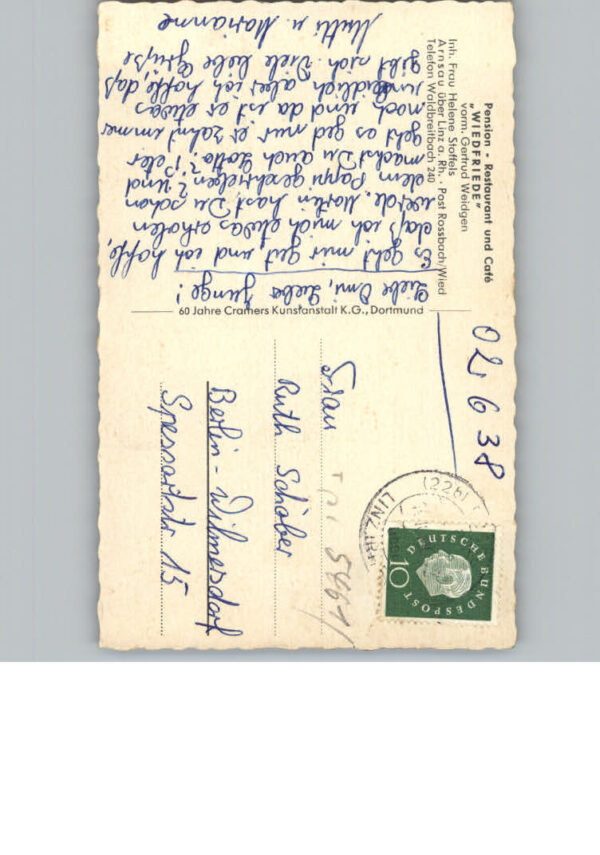 Pension - Restaurant und Café
„WIEDFRIEDE"
vorm. Gertrud Weidgen
Inh. Frau Helene Stoffels
Arnsau über Linz a. Rh. · Post Rossbach/Wied
Telefon Waldbreitbach 240
Liebe Omi, Lieber Junge!
Es geht mir gut und ich hoffe,
daß ich mich etwas erholen
werde. Martin hast Du schon
dem Pappi geschrieben? Und
machst Du auch Lotto?
geht es gut nur er zahnt immer
noch und da ist er etwas
unleidlich aber ich hoffe, daß
gibt sich. Viele liebe Grüße
Mutti u. Marianne
60 Jahre Cramers Kunstanstalt K.G., Dortmund
02 638
(22b) LINZ
DEUTSCHE BUNDESPOST
10
Frau
Ruth Schober
Berlin-Wilmersdorf
Spessartstr 15